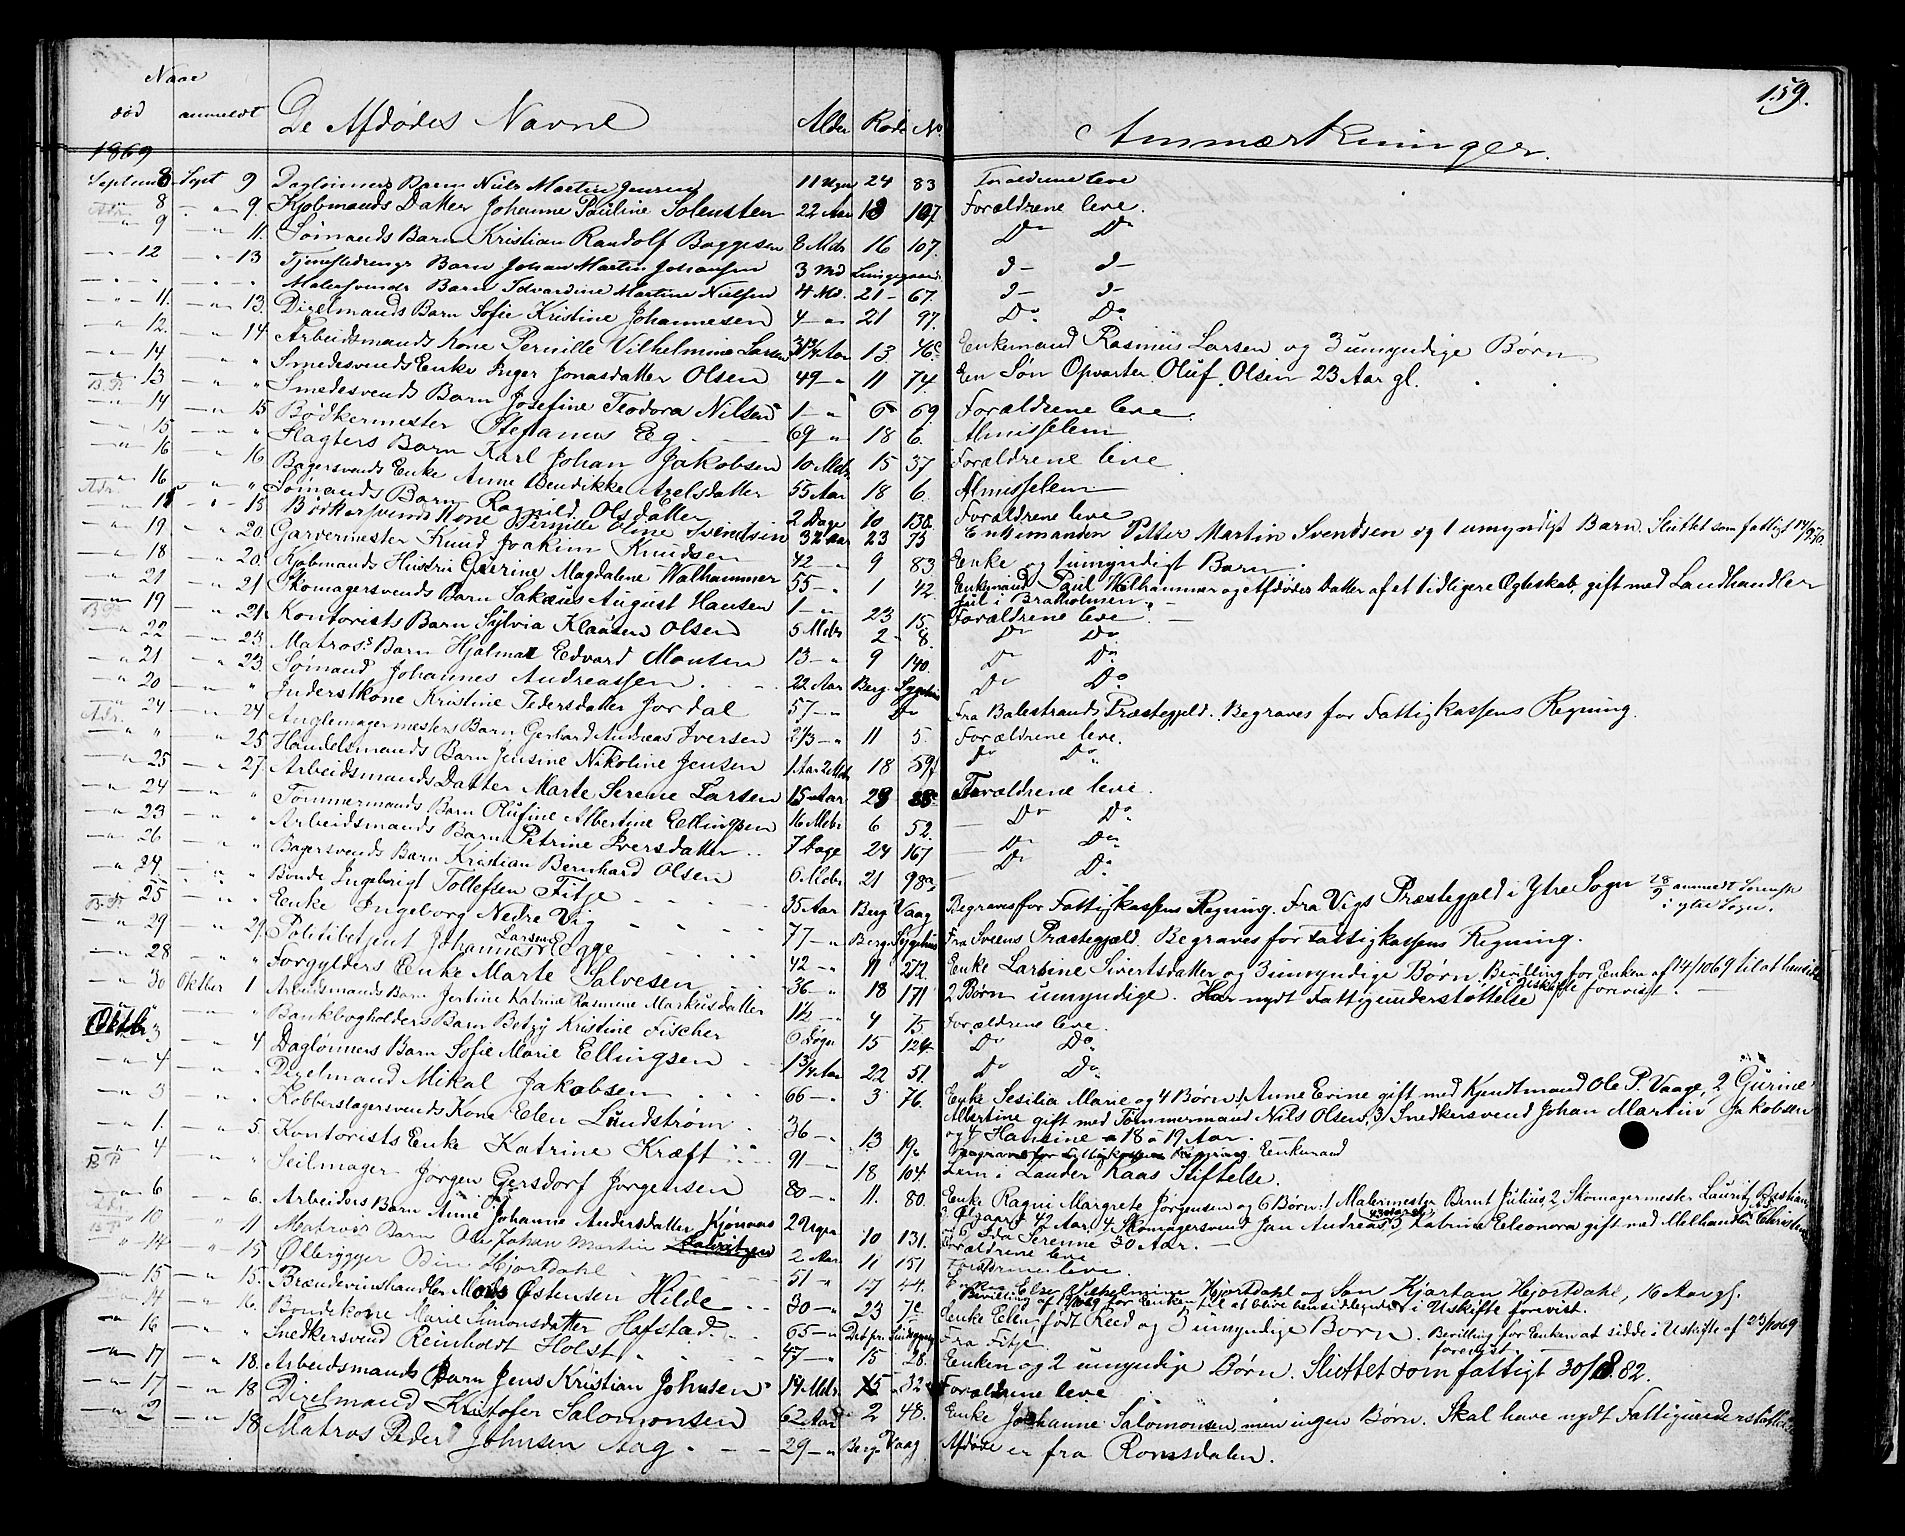 159.
Naar
død anmeldt De Afdødes Navne Alder Rode No Anmærkninger.
1869
Septemb 8 Sept 9 Daglønners Barn Niels Martin Jensen 11 Ugr 24 83 Forældrene leve
8 " 9. Kjøbmands Datter Johanne Pauline Solensten 22 Aar 18 107 Forældrene leve.
9 " 11. Sømands Barn Kristian Randolf Baggesen 8 Mdr 16 107. Do Do
12 " 13 Tjenestedrengs Barn Johan Martin Johansen 3 Md Lungegaard
" " Malersvends Barn Edvardine Martine Nielsen 4 Md. 21 67.
11. " 13. Dixelmands Barn Sofie Kristine Johannesen 4 " 21 97. Do Do
12. " 14 Arbeidsmands Kone Pernille Vilhelmine Larsen Aar 13 46c Enkemand Rasmus Larsen og 3 umyndige Børn
14 " " Smedesvends Enke Inger Jonasdatter Olsen 49 " 11 74 En Søn Opvarter Oluf Olsen 23 Aar gl.
B.P. 13 " " Smedesvends Barn Josefine Teodora Nilsen 1 " 6 69. Forældrene leve.
14 " 15 Bødkermester Stefanus Eg 69 " 18 6. Almisselem
15 " " Slagters Barn Karl Johan Jakobsen 10 Mdr 15 37 Forældrene leve.
16 " 16 Bagersvends Enke Anne Bendikke Axelsdatter 55 Aar 18 6. Almisselem
Adr. 16 " " Sømands Barn Ragnild Olsdatter 2 Dage 10 136. Forældrene leve
15 " 15 Bødkersvends Kone Pernille Oline Svendsen 32 Aar 23 Enkemanden Petter Martin Svendsen og 1 umyndigt Barn. Sluttet som fattigt
19. " 20. Garvermester Knud Joakim Knudsen 42 " 9 83 Enke og 1 umyndigt Barn.
18 " 20. Kjøbmands Hustru Gjerine Magdalene Walhammer 55 " 1 42. Enkemand Paul Walhammer og Afdødes Datter af et tidligere Ægteskab, gift med Landhandler
i Bratholmen.
21 " 21 Skomagersvends Barn Sakæus August Hansen 1 " 23 15. Forældrene leve.
B.P. 19 " 21. Kontorists Barn Sylvia Klausen Olsen 5 Mdr 2 8. Do Do
22 " 23. Matros. Barn Hjalmar Edvard Monsen 13 " 9 140. Do Do
21 " 23. Sømand Johannes Andreassen 22 Aar Berg. Sygehus Do Do
20 " " Inderst Kone Kristine Pedersdatter Jordal 57 " Do Fra Balestrands Præstegjeld. Begraves for Fattigkassens Regning.
Adr. 24 " 24 Anglemagermesters Barn Gerhard Andreas Iversen 2/3 " 11 5. Forældrene leve.
" " 25 Handelsmands Barn Jensine Nikoline Jensen 1 Aar 2 Mdr 18 59 Do Do
25 " 27. Arbeidsmands Datter Marte Serene Larsen 15 Aar 23 Forældrene leve.
24 " " Tømmermands Barn Olufine Albertine Ellingsen 16 Mdr 6 52. Do Do
23 " " Arbeidsmands Barn Petrine Iversdatter 7 Dage 24 167 Do Do
26 " " Bagersvends Barn Kristian Bernhard Olsen 6 Mdr 21 98a Do Do
24 " " Bonde Ingebrigt Tollefsen Fitje 35 Aar Berg Vaag Begraves for Fattigkassens Regning. Fra Vigs Præstegjeld i Ytre Sogn 28/9 anmeldt
i ytre Sogn.
B.P. 25 " " Enke Ingeborg Nedre Vig 77 " Berg. Sygehus Fra Sveens Præstegjæld. Begraves for Fattigkassens Regning.
29 " 29. Politibetjent Johannes Larsen 42 " 11 272. Enke Larsine Sivertsdatter og 3 umyndige Børn, Bevilling for Enken af 14/10 69 til at hensidde
i Uskifte forevist.
28 " " Forgylders Enke Marte Salvesen 36 " 18 171 2 Børn umyndige. Har nydt Fattigunderstøttelse
30 Oktber 1 Arbeidsmands Barn Jertine Katrine Rasmine Markusdatter 1½ " 4 75 Forældrene leve.
Oktbr 3 " " Bankbogholders Barn Betzy Kristine Fischer 6 Døgn 15 124 Do Do
" 4 Daglønners Barn Sofie Marie Ellingsen 1 3/4 Aar 22 51. Do Do
4 " " Dixelmand Mikal Jakobsen 66 " 3 76. Enke Sesilia Marie og 4 Børn: 1 Anne Erine gift med Kjendtmand Ole P. Vaage, 2 Gurine
Martine gift med Tømmermand Nils Olsen, 3) Snedkersvend Johan Martin Jakobsen
og 4 Hansine 18 à 19 Aar.
3 " " Kobberslagersvends Kone Elen Lundstrøm 36 " 13 19. Begraves for Fattigkassens Regning Enkemand
1. " 5. Kontorists Enke Katrine Kræft 91 " 18 104. Lem i Lauder Kaas Stiftelse.
B.P. 4 " " Seilmager Jørgen Gersdorf Jørgensen 80 " 11. 80. Enke Ragni Margrete Jørgensen og 6 Børn: 1 Malermester Bernt Julius, 2 Skomagermester Lauritz Bastian,
42 Aar, 4, Skomagersvend Jan Andreas 5, Katrine Eleonora gift med Melhandler Christensen
6, Ida Serenne 30 Aar.
6 " 6. Arbeiders Barn Anne Johanne Andersdatter Kjønaas 2 Ugr 10 131. Forældrene leve
10 " 11 Matros Barn Ole Johan Martin 2 Aar 11 151 Forældrene leve.
14 " 15 Ølbrygger Odin Hjortdahl 51 " 17 44. Enke Else Vilhelmine Hjortdahl og Søn Kjartan Hjortdahl, 16 Aar gl.
Bevilling for Enken til at blive hensiddende i Uskifte forevist.
15 " 15. Brændevinshandler Mons Østensen Hilde 30 " 23 7c Enke Ellen født Reed og 3 umyndige Børn. Bevilling for Enken at sidde i Uskifte af 23/10 69
forevist.
14 " 16. Bondekone Marie Simonsdatter Hafstad. 65 " Fra Fitje.
16 " " Snedkersvend Reinholdt Holst 47 " 15 28. Enken og 2 umyndige Børn. Sluttet som fattigt 82.
17 " 18. Arbeidsmands Barn Jens Kristian Johnsen 14 Mdr 15 32 Forældrene leve
17 " 18 Dixelmand Kristofer Salomonsen 62 Aar 2 48. Enke Johanne Salomonsen, men ingen Børn. Skal have nydt Fattigunderstøttelse
2 " 18. Matros Peder Johnsen Aag 29 " Berg Vaag Afdøde er fra Romsdalen.